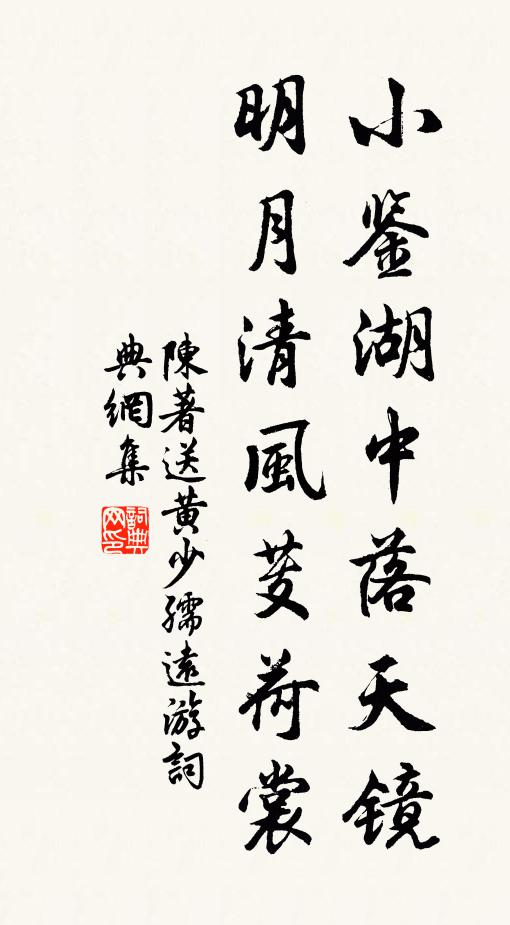 小鉴湖中落天镜
明月清風芰荷裳
陳著送黄少孺遠游詞
典網集
詞典网印